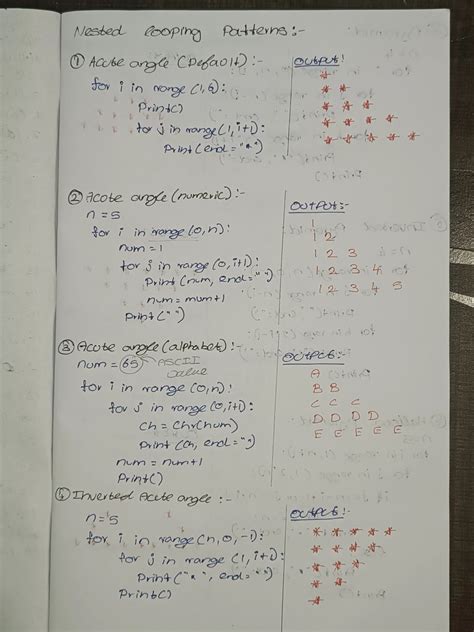 Nested looping Patterns:-
① Acute angle (Default) :-
for i in range (1,6):
Print()
for j in range(1, i+1):
Print(end="*")
OUTPUT:
*
* *
* * *
* * * *
* * * * *
② Acute angle (numeric) :-
n = 5
for i in range (0,n):
num = 1
for j in range (0, i+1):
Print (num, end=" ")
num = num+1
Print(" ")
OUTPUT:-
1
1 2
1 2 3
1 2 3 4
1 2 3 4 5
③ Acute angle (alphabet) :-
num = 65 ASCII
value
for i in range (0,n):
for j in range (0, i+1):
ch = chr(num)
Print (ch, end=" ")
num = num+1
Print()
OUTPUT:-
A
B B
C C C
D D D D
E E E E E
④ Inverted Acute angle :-
n = 5
for i in range (n, 0, -1):
for j in range (1, i+1):
Print ("*", end=" ")
Print()
OUTPUT:-
* * * * *
* * * *
* * *
* *
*